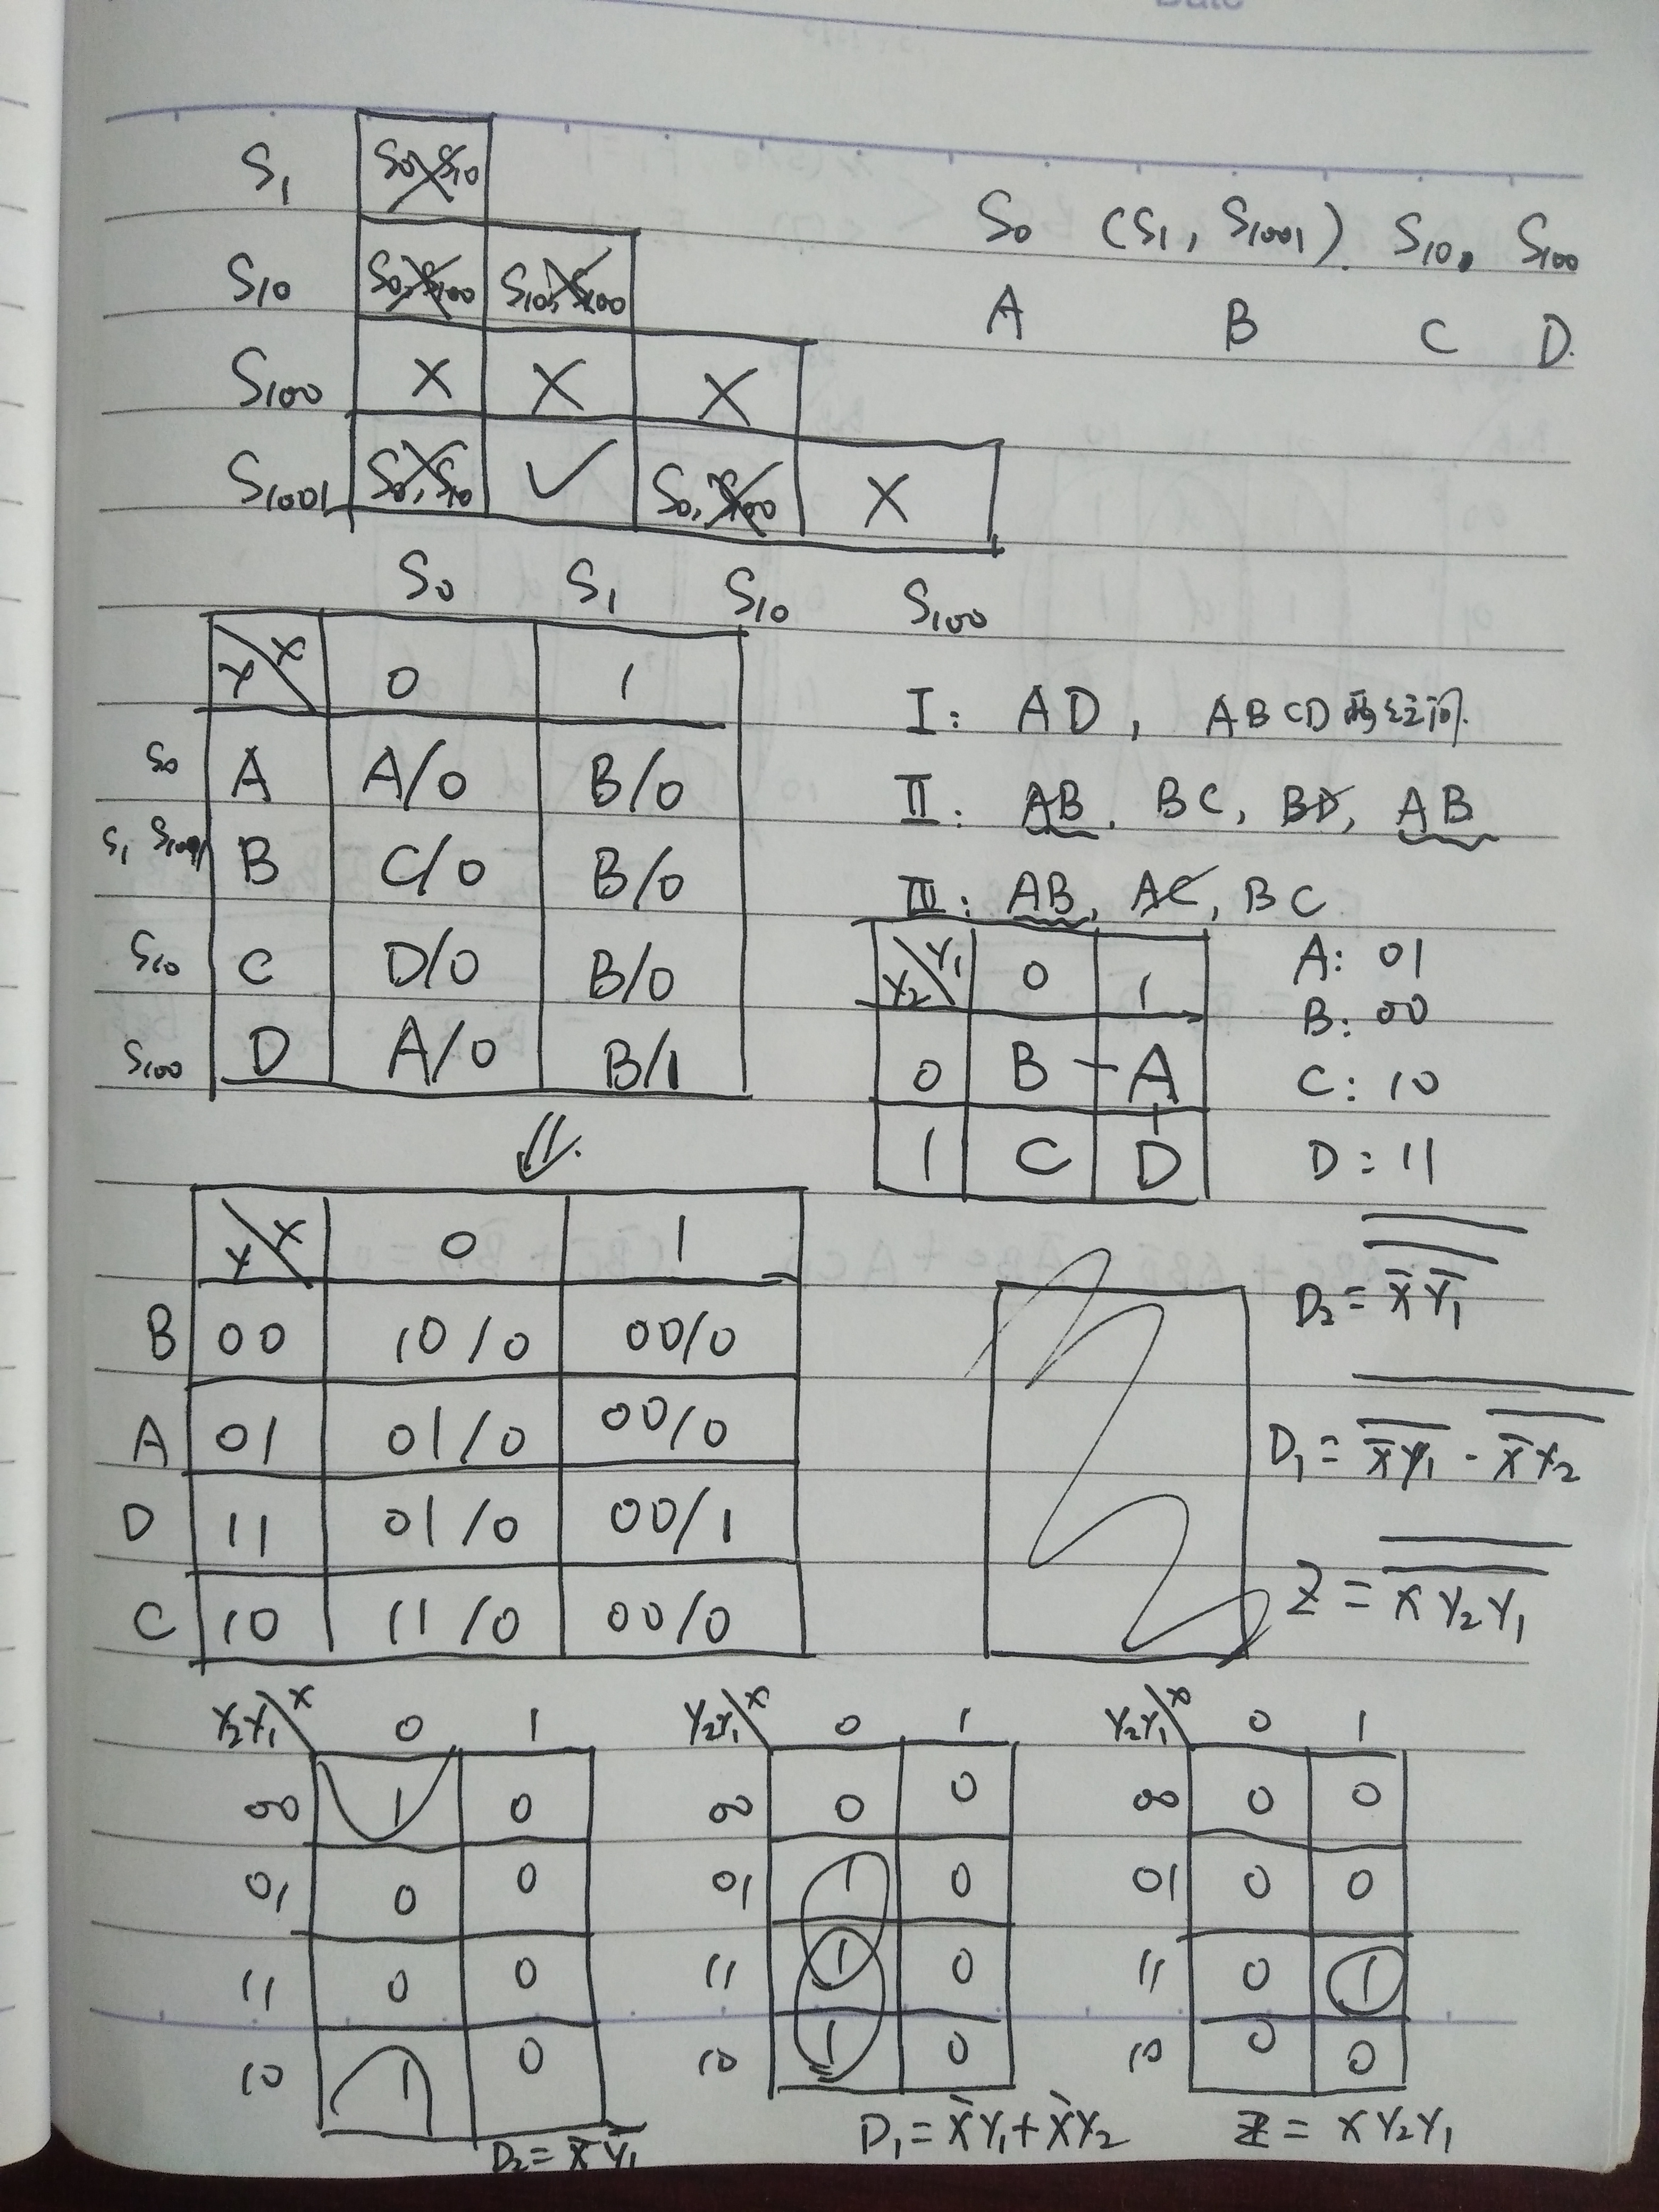 Date
S₁ S₀ S₁₀
S₁₀ S₀,S₁₀₀ S₁₀,S₁₀₀
S₁₀₀ X X X
S₁₀₀₁ S₀,S₁₀ ✓ S₀,S₁₀₀ X
S₀ S₁ S₁₀ S₁₀₀
S₀ (S₁, S₁₀₀₁). S₁₀, S₁₀₀
A B C D.
Y X 0 1
S₀ A A/0 B/0
S₁ S₁₀₀₁ B C/0 B/0
S₁₀ C D/0 B/0
S₁₀₀ D A/0 B/1
I: AD, ABCD两两之间.
II: AB, BC, BD, AB
III: AB, AC, BC
Y₂ Y₁ 0 1
0 B A
1 C D
A: 01
B: 00
C: 10
D: 11
⇓.
Y X 0 1
B 00 10/0 00/0
A 01 01/0 00/0
D 11 01/0 00/1
C 10 11/0 00/0
D₂ = X̅ Y̅₁
D₁ = X̅Y₁ · X̅Y₂
Z = X Y₂ Y₁
Y₂Y₁ X 0 1
00 1 0
01 0 0
11 0 0
10 1 0
D₂ = X̅ Y̅₁
Y₂Y₁ X 0 1
00 0 0
01 1 0
11 1 0
10 1 0
D₁ = X̅Y₁ + X̅Y₂
Y₂Y₁ X 0 1
00 0 0
01 0 0
11 0 1
10 0 0
Z = X Y₂ Y₁